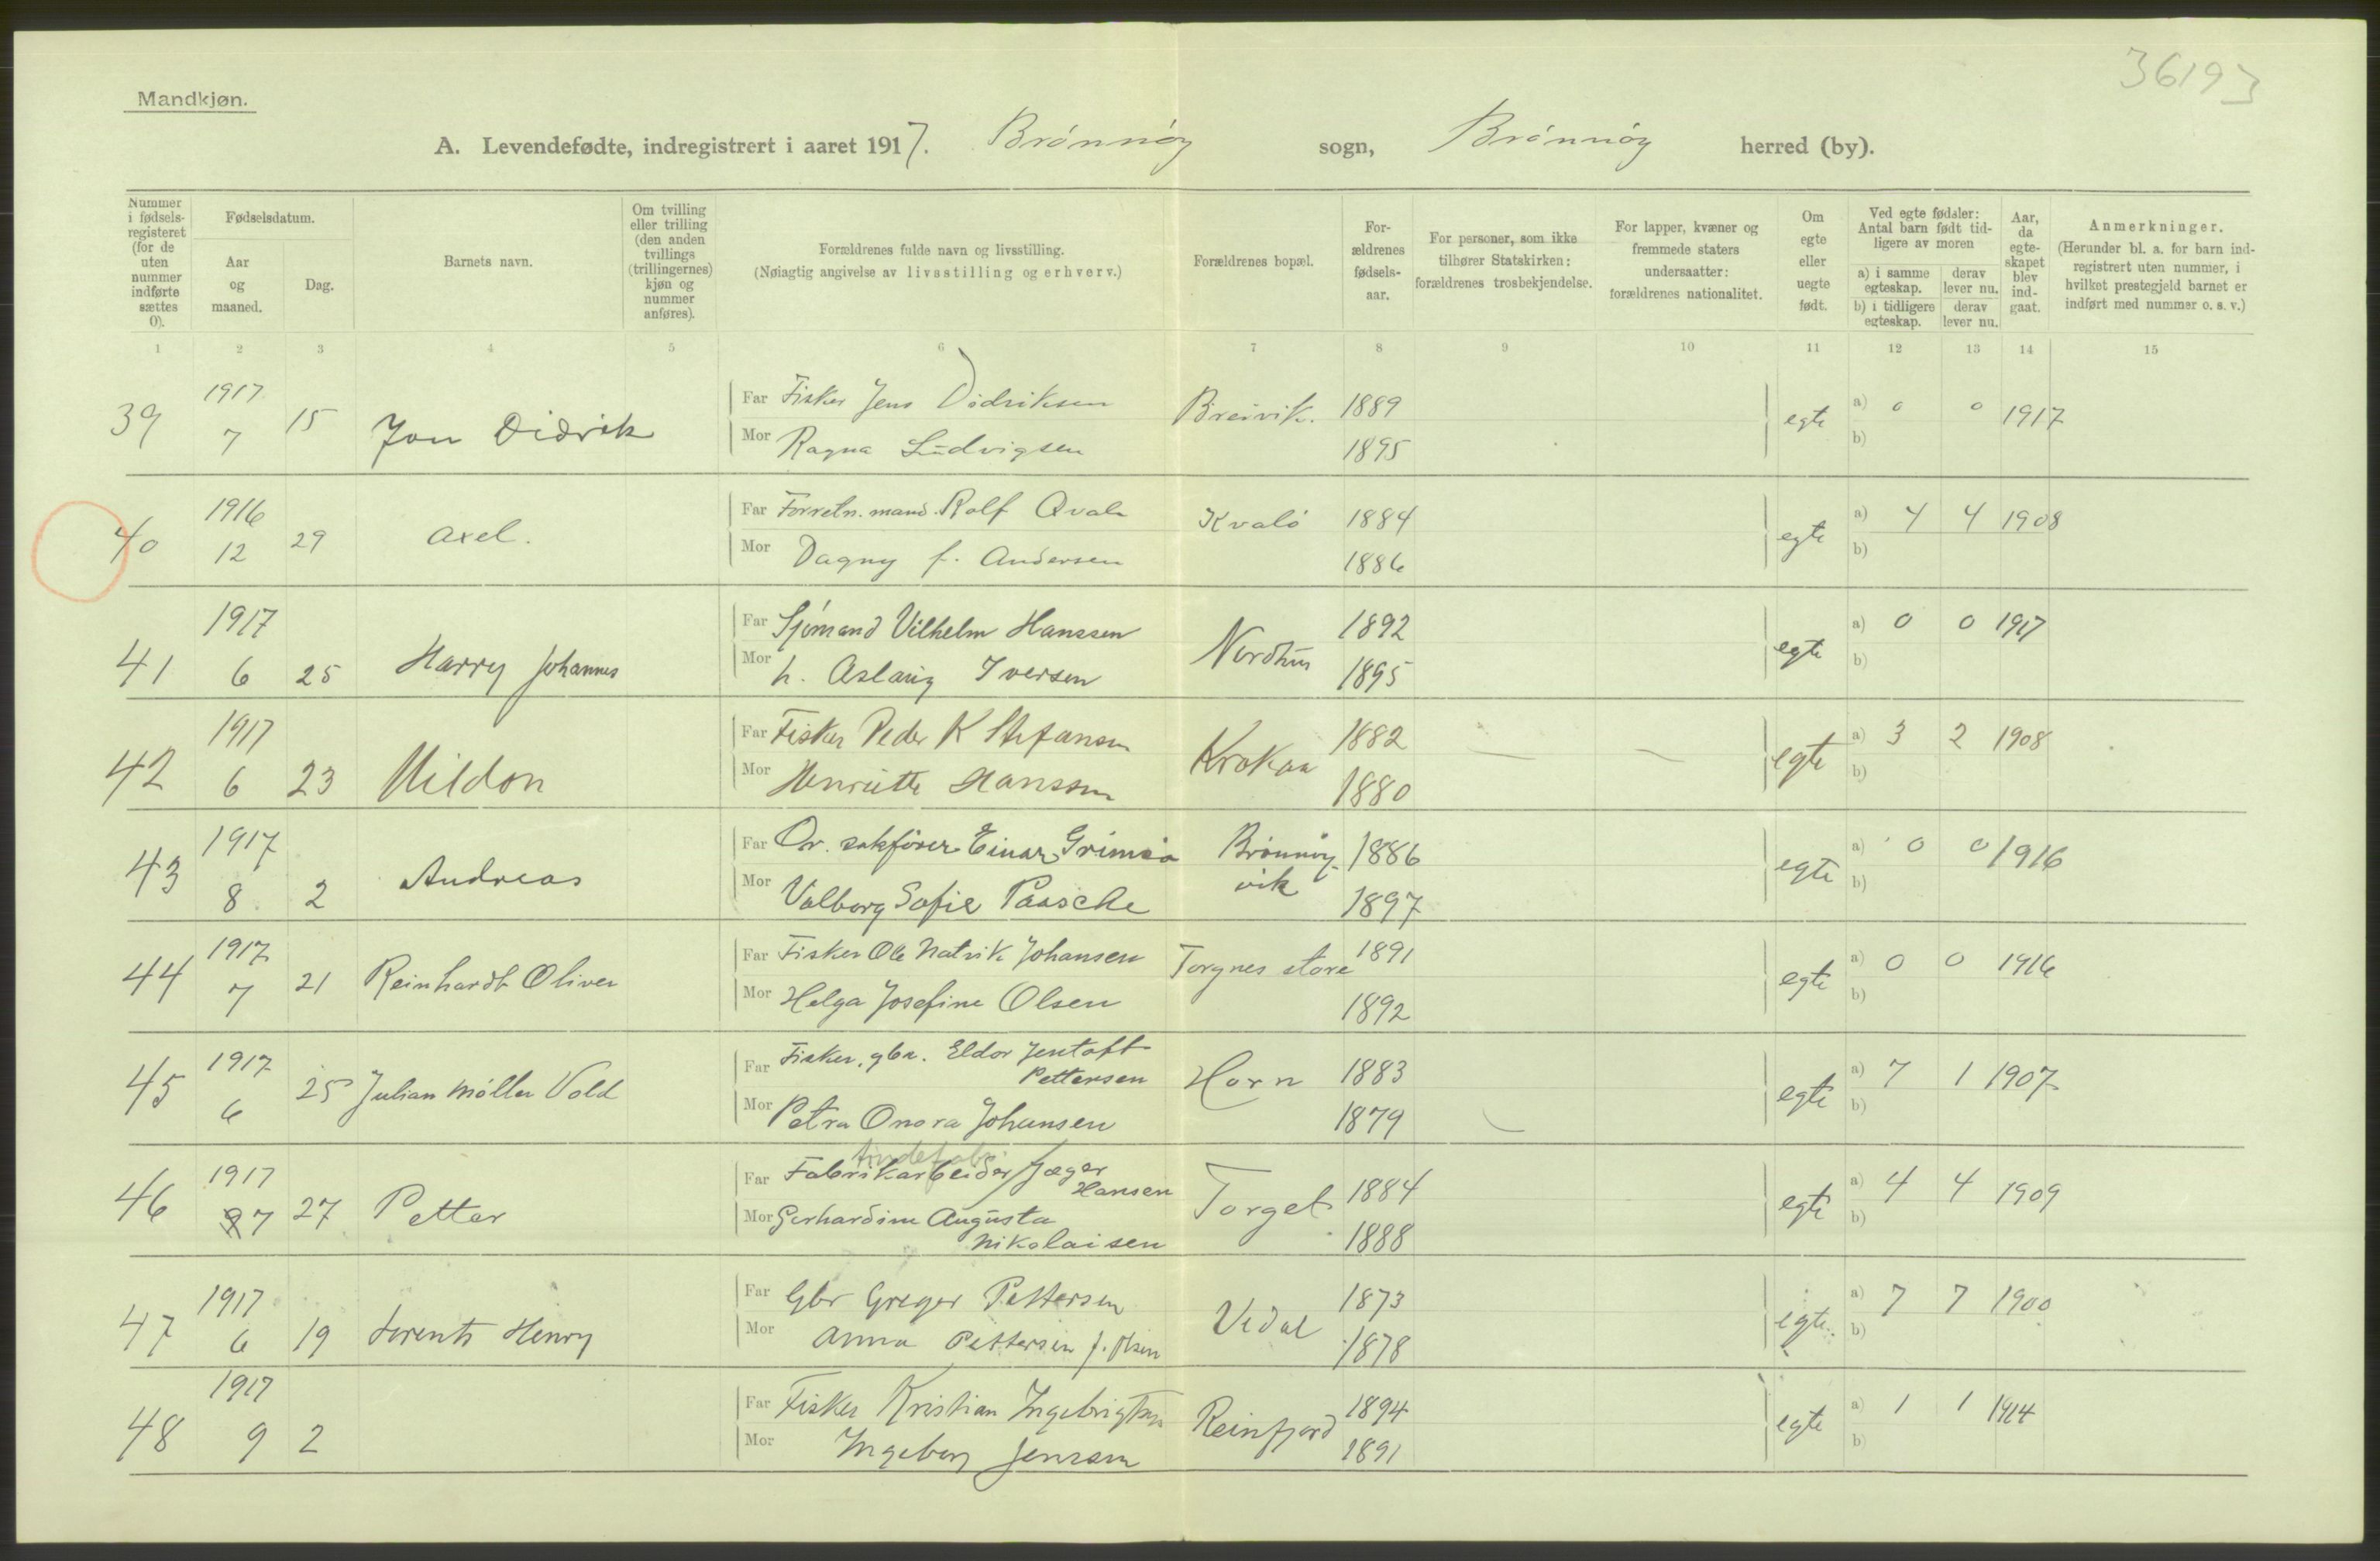 36193
Mandkjøn.
A. Levendefødte, indregistrert i aaret 1917. Brönnöy sogn, Brönnöy herred (by).
Nummer i fødselsregisteret (for de uten nummer indførte sættes 0).
Fødselsdatum.
Aar og maaned.
Dag.
Barnets navn.
Om tvilling eller trilling (den anden tvillings (trillingernes) kjøn og nummer anføres).
Forældrenes fulde navn og livsstilling.
(Nøiagtig angivelse av livsstilling og erhverv.)
Forældrenes bopæl.
Forældrenes fødselsaar.
For personer, som ikke tilhører Statskirken: forældrenes trosbekjendelse.
For lapper, kvæner og fremmede staters undersaatter: forældrenes nationalitet.
Om egte eller uegte født.
Ved egte fødsler: Antal barn født tidligere av moren
a) i samme egteskap. derav lever nu.
b) i tidligere egteskap. derav lever nu.
Aar, da egteskapet blev indgaat.
Anmerkninger.
(Herunder bl. a. for barn indregistrert uten nummer, i hvilket prestegjeld barnet er indført med nummer o. s. v.)
1 2 3 4 5 6 7 8 9 10 11 12 13 14 15
39 1917 7 15 Jon Didrik
Far Fisker Jens Didriksen Breivik. 1889 egte a) 0 0 1917
Mor Ragna Ludvigsen 1895 b)
40 1916 12 29 Axel.
Far Forretn.mand. Rolf Qvale Kvalö 1884 egte a) 4 4 1908
Mor Dagny f. Andersen 1886 b)
41 1917 6 25 Harry Johannes
Far Sjömand Vilhelm Hanssen Nordhus 1892 egte a) 0 0 1917
Mor h. Aslaug Iversen 1895 b)
42 1917 6 23 Hildon
Far Fisker Peder K Stefansen Krokaa 1882 egte a) 3 2 1908
Mor Henriette Hanssen 1880 b)
43 1917 8 2 Andreas
Far Or. sakförer Einar Grimsö Brönnöyvik 1886 egte a) 0 0 1916
Mor Valborg Sofie Paasche 1897 b)
44 1917 7 21 Reinhardt Oliver
Far Fisker Ole Natvik Johansen Torgnes store 1891 egte a) 0 0 1916
Mor Helga Josefine Olsen 1892 b)
45 1917 6 25 Julian Møller Vold
Far Fisker, gbr. Eldor Jentoft Pettersen Horn 1883 egte a) 7 1 1907
Mor Petra Onora Johansen 1879 b)
46 1917 7 27 Petter
Far Fabrikarbeider Jæger Hansen Torget 1884 egte a) 4 4 1909
Mor Gerhardine Augusta Nikolaisen 1888 b)
47 1917 6 19 Lorents Henry
Far Gbr Greger Pettersen Vedal 1873 egte. a) 7 7 1900
Mor Anna Pettersen f. Olsen 1878 b)
48 1917 9 2
Far Fisker Kristian Ingebrigtsen Reinfjord 1894 egte a) 1 1 1914
Mor Ingeborg Jensen 1891 b)